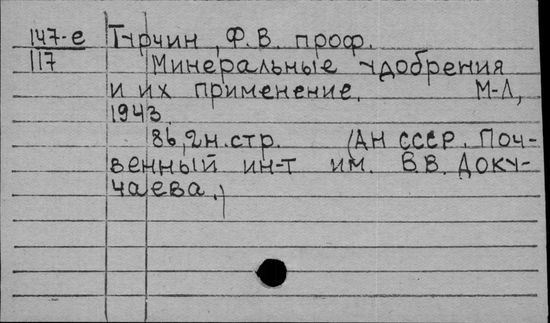 147-е Турчин, Ф.В. проф.
117 Минеральные удобрения
и их применение. М-Л,
1943.
86,2н.стр. (АН СССР. Поч-
венный ин-т им. В.В. Доку-
чаева.)